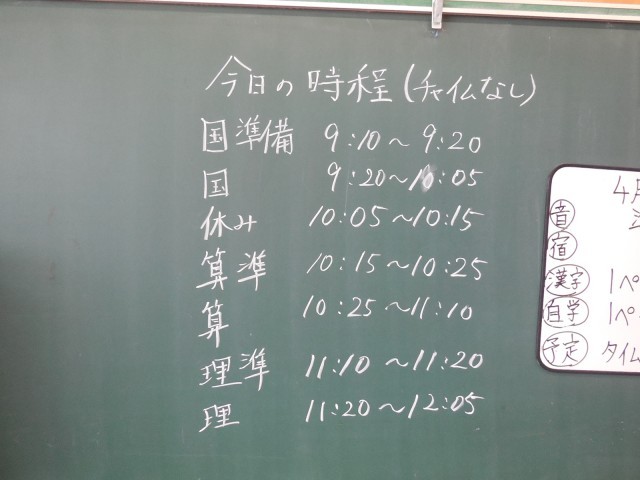 今日の時程(チャイムなし)
国準備 9:10～9:20
国 9:20～10:05
休み 10:05～10:15
算準 10:15～10:25
算 10:25～11:10
理準 11:10～11:20
理 11:20～12:05
4月
音
宿
漢字 1ペ
自学 1ペ
予定 タイム